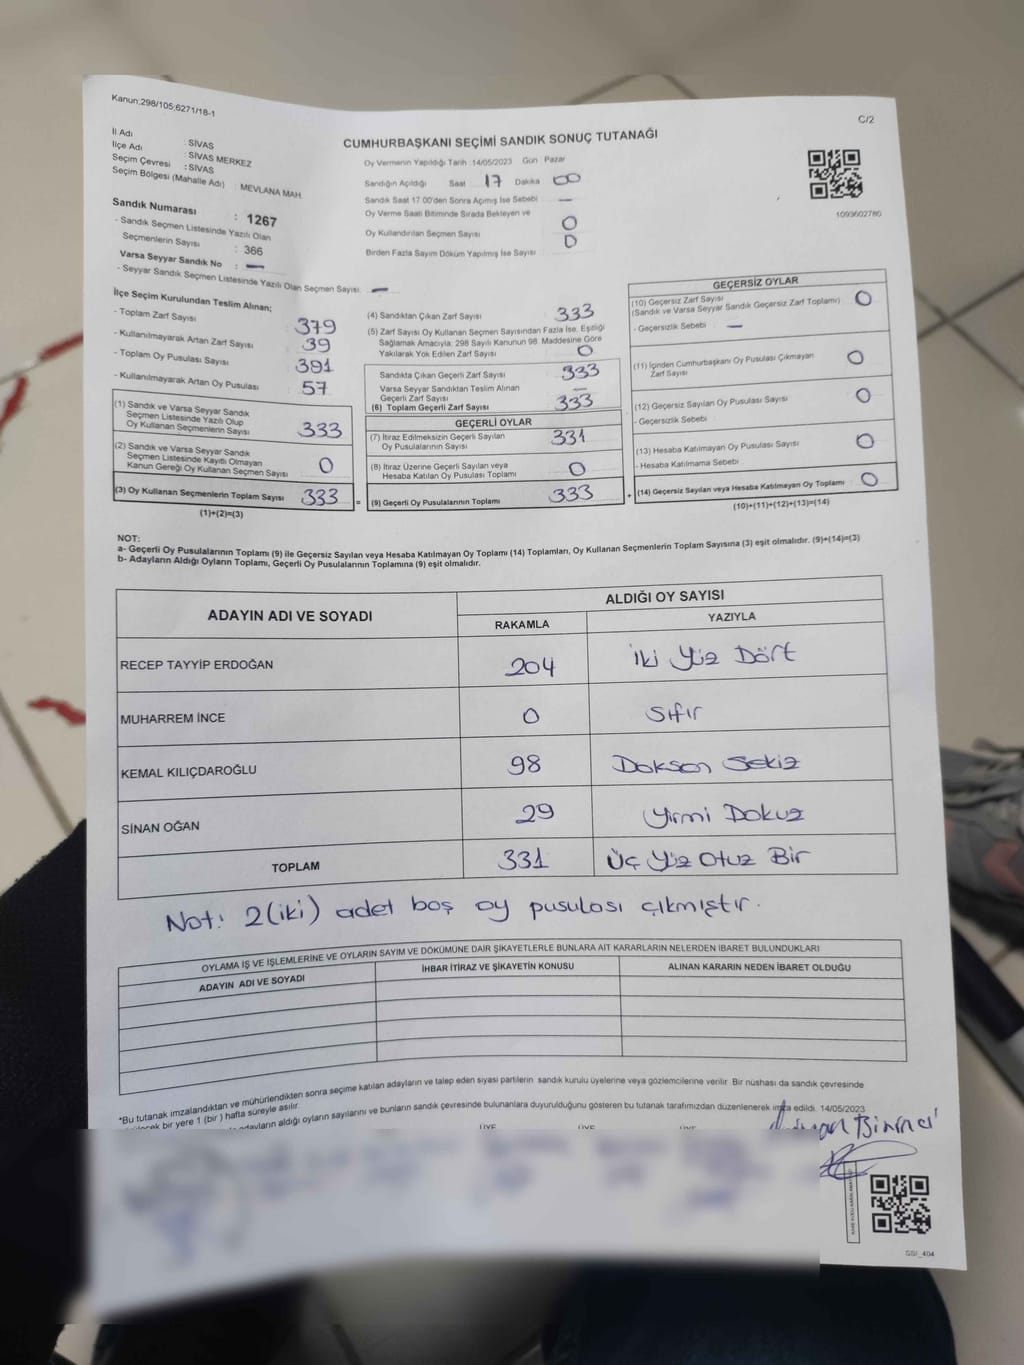 Kanun;298/105;6271/18-1
C/2
CUMHURBAŞKANI SEÇİMİ SANDIK SONUÇ TUTANAĞI
İl Adı : SİVAS
İlçe Adı : SİVAS MERKEZ
Seçim Çevresi : SİVAS
Seçim Bölgesi (Mahalle Adı) : MEVLANA MAH.
Sandık Numarası : 1267
- Sandık Seçmen Listesinde Yazılı Olan
Seçmenlerin Sayısı : 366
Varsa Seyyar Sandık No : —
- Seyyar Sandık Seçmen Listesinde Yazılı Olan Seçmen Sayısı: —
Oy Vermenin Yapıldığı Tarih :14/05/2023 Gün Pazar
Sandığın Açıldığı Saat : 17 Dakika 00
Sandık Saat 17.00'den Sonra Açımış İse Sebebi : —
Oy Verme Saati Bitiminde Sırada Bekleyen ve
Oy Kullandırılan Seçmen Sayısı : 0
Birden Fazla Sayım Döküm Yapılmış İse Sayısı : 0
1093602786
İlçe Seçim Kurulundan Teslim Alınan;
- Toplam Zarf Sayısı : 379
- Kullanılmayarak Artan Zarf Sayısı : 39
- Toplam Oy Pusulası Sayısı : 391
- Kullanılmayarak Artan Oy Pusulası : 57
(1) Sandık ve Varsa Seyyar Sandık
Seçmen Listesinde Yazılı Olup
Oy Kullanan Seçmenlerin Sayısı 333
(2) Sandık ve Varsa Seyyar Sandık
Seçmen Listesinde Kayıtlı Olmayan
Kanun Gereği Oy Kullanan Seçmen Sayısı 0
(3) Oy Kullanan Seçmenlerin Toplam Sayısı 333 =
(1)+(2)=(3)
(4) Sandıktan Çıkan Zarf Sayısı : 333
(5) Zarf Sayısı Oy Kullanan Seçmen Sayısından Fazla İse, Eşitliği
Sağlamak Amacıyla, 298 Sayılı Kanunun 98. Maddesine Göre
Yakılarak Yok Edilen Zarf Sayısı : 0
Sandıkta Çıkan Geçerli Zarf Sayısı : 333
Varsa Seyyar Sandıktan Teslim Alınan
Geçerli Zarf Sayısı : —
(6) Toplam Geçerli Zarf Sayısı : 333
GEÇERLİ OYLAR
(7) İtiraz Edilmeksizin Geçerli Sayılan
Oy Pusulalarının Sayısı : 331
(8) İtiraz Üzerine Geçerli Sayılan veya
Hesaba Katılan Oy Pusulası Toplamı 0
(9) Geçerli Oy Pusulalarının Toplamı : 333 +
GEÇERSİZ OYLAR
(10) Geçersiz Zarf Sayısı
(Sandık ve Varsa Seyyar Sandık Geçersiz Zarf Toplamı) : 0
- Geçersizlik Sebebi : —
(11) İçinden Cumhurbaşkanı Oy Pusulası Çıkmayan
Zarf Sayısı : 0
(12) Geçersiz Sayılan Oy Pusulası Sayısı : 0
- Geçersizlik Sebebi :
(13) Hesaba Katılmayan Oy Pusulası Sayısı : 0
- Hesaba Katılmama Sebebi :
(14) Geçersiz Sayılan veya Hesaba Katılmayan Oy Toplamı : 0
(10)+(11)+(12)+(13)=(14)
NOT:
a- Geçerli Oy Pusulalarının Toplamı (9) ile Geçersiz Sayılan veya Hesaba Katılmayan Oy Toplamı (14) Toplamları, Oy Kullanan Seçmenlerin Toplam Sayısına (3) eşit olmalıdır. (9)+(14)=(3)
b- Adayların Aldığı Oyların Toplamı, Geçerli Oy Pusulalarının Toplamına (9) eşit olmalıdır.
ADAYIN ADI VE SOYADI
ALDIĞI OY SAYISI
RAKAMLA YAZIYLA
RECEP TAYYİP ERDOĞAN 204 İki Yüz Dört
MUHARREM İNCE 0 Sıfır
KEMAL KILIÇDAROĞLU 98 Doksan Sekiz
SİNAN OĞAN 29 Yirmi Dokuz
TOPLAM 331 Üç Yüz Otuz Bir
Not: 2(iki) adet boş oy pusulası çıkmıştır.
OYLAMA İŞ VE İŞLEMLERİNE VE OYLARIN SAYIM VE DÖKÜMÜNE DAİR ŞİKAYETLERLE BUNLARA AİT KARARLARIN NELERDEN İBARET BULUNDUKLARI
ADAYIN ADI VE SOYADI İHBAR İTİRAZ VE ŞİKAYETİN KONUSU ALINAN KARARIN NEDEN İBARET OLDUĞU
*Bu tutanak imzalandıktan ve mühürlendikten sonra seçime katılan adayların ve talep eden siyasi partilerin sandık kurulu üyelerine veya gözlemcilerine verilir. Bir nüshası da sandık çevresinde
bir yere 1 (bir ) hafta süreyle asılır.
adayların aldığı oyların sayılarını ve bunların sandık çevresinde bulunanlara duyurulduğunu gösteren bu tutanak tarafımızdan düzenlenerek imza edildi. 14/05/2023
ÜYE ÜYE ÜYE
GSI_404